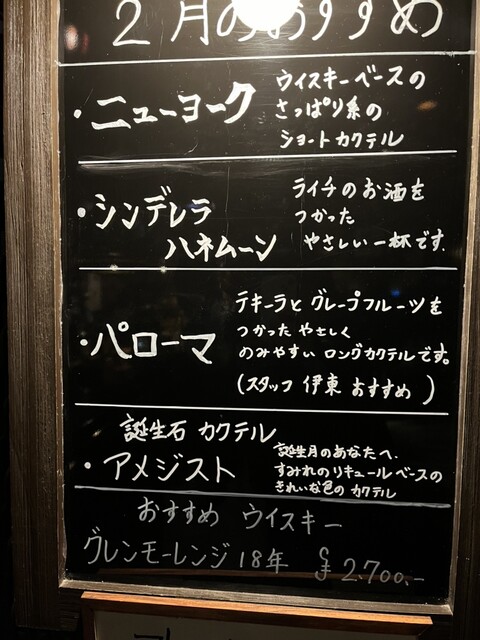 2月のおすすめ
・ニューヨーク
ウイスキーベースの
さっぱり系の
ショートカクテル
・シンデレラ
ハネムーン
ライチのお酒を
つかった
やさしい一杯です.
・パローマ
テキーラと グレープフルーツを
つかった やさしく
のみやすい ロングカクテルです。
(スタッフ 伊東 おすすめ )
誕生石 カクテル
・アメジスト
誕生月のあなたへ.
すみれのリキュールベースの
きれいな色の カクテル
おすすめ ウイスキー
グレンモーレンジ 18年 ¥ 2,700.-